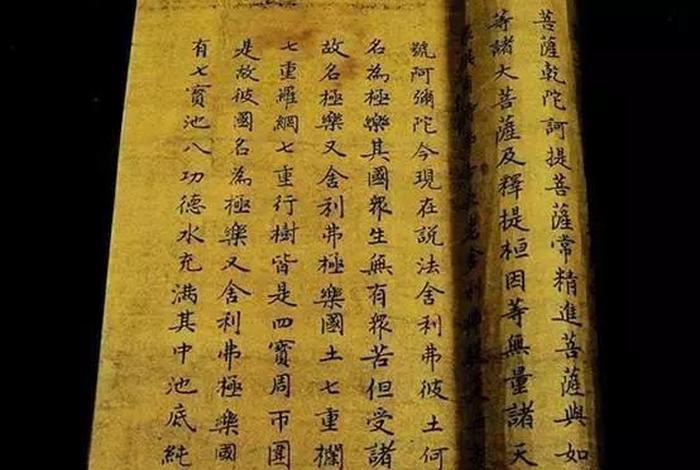 菩薩乾陀訶提菩薩常精進菩薩與如
等諸大菩薩及釋提桓因等無量諸天
舍利弗
號阿彌陀今現在說法舍利弗彼土何
名為極樂其國眾生無有眾苦但受諸
故名極樂又舍利弗極樂國土七重欄
七重羅網七重行樹皆是四寶周帀圍
是故彼國名為極樂又舍利弗極樂國
有七寶池八功德水充滿其中池底純